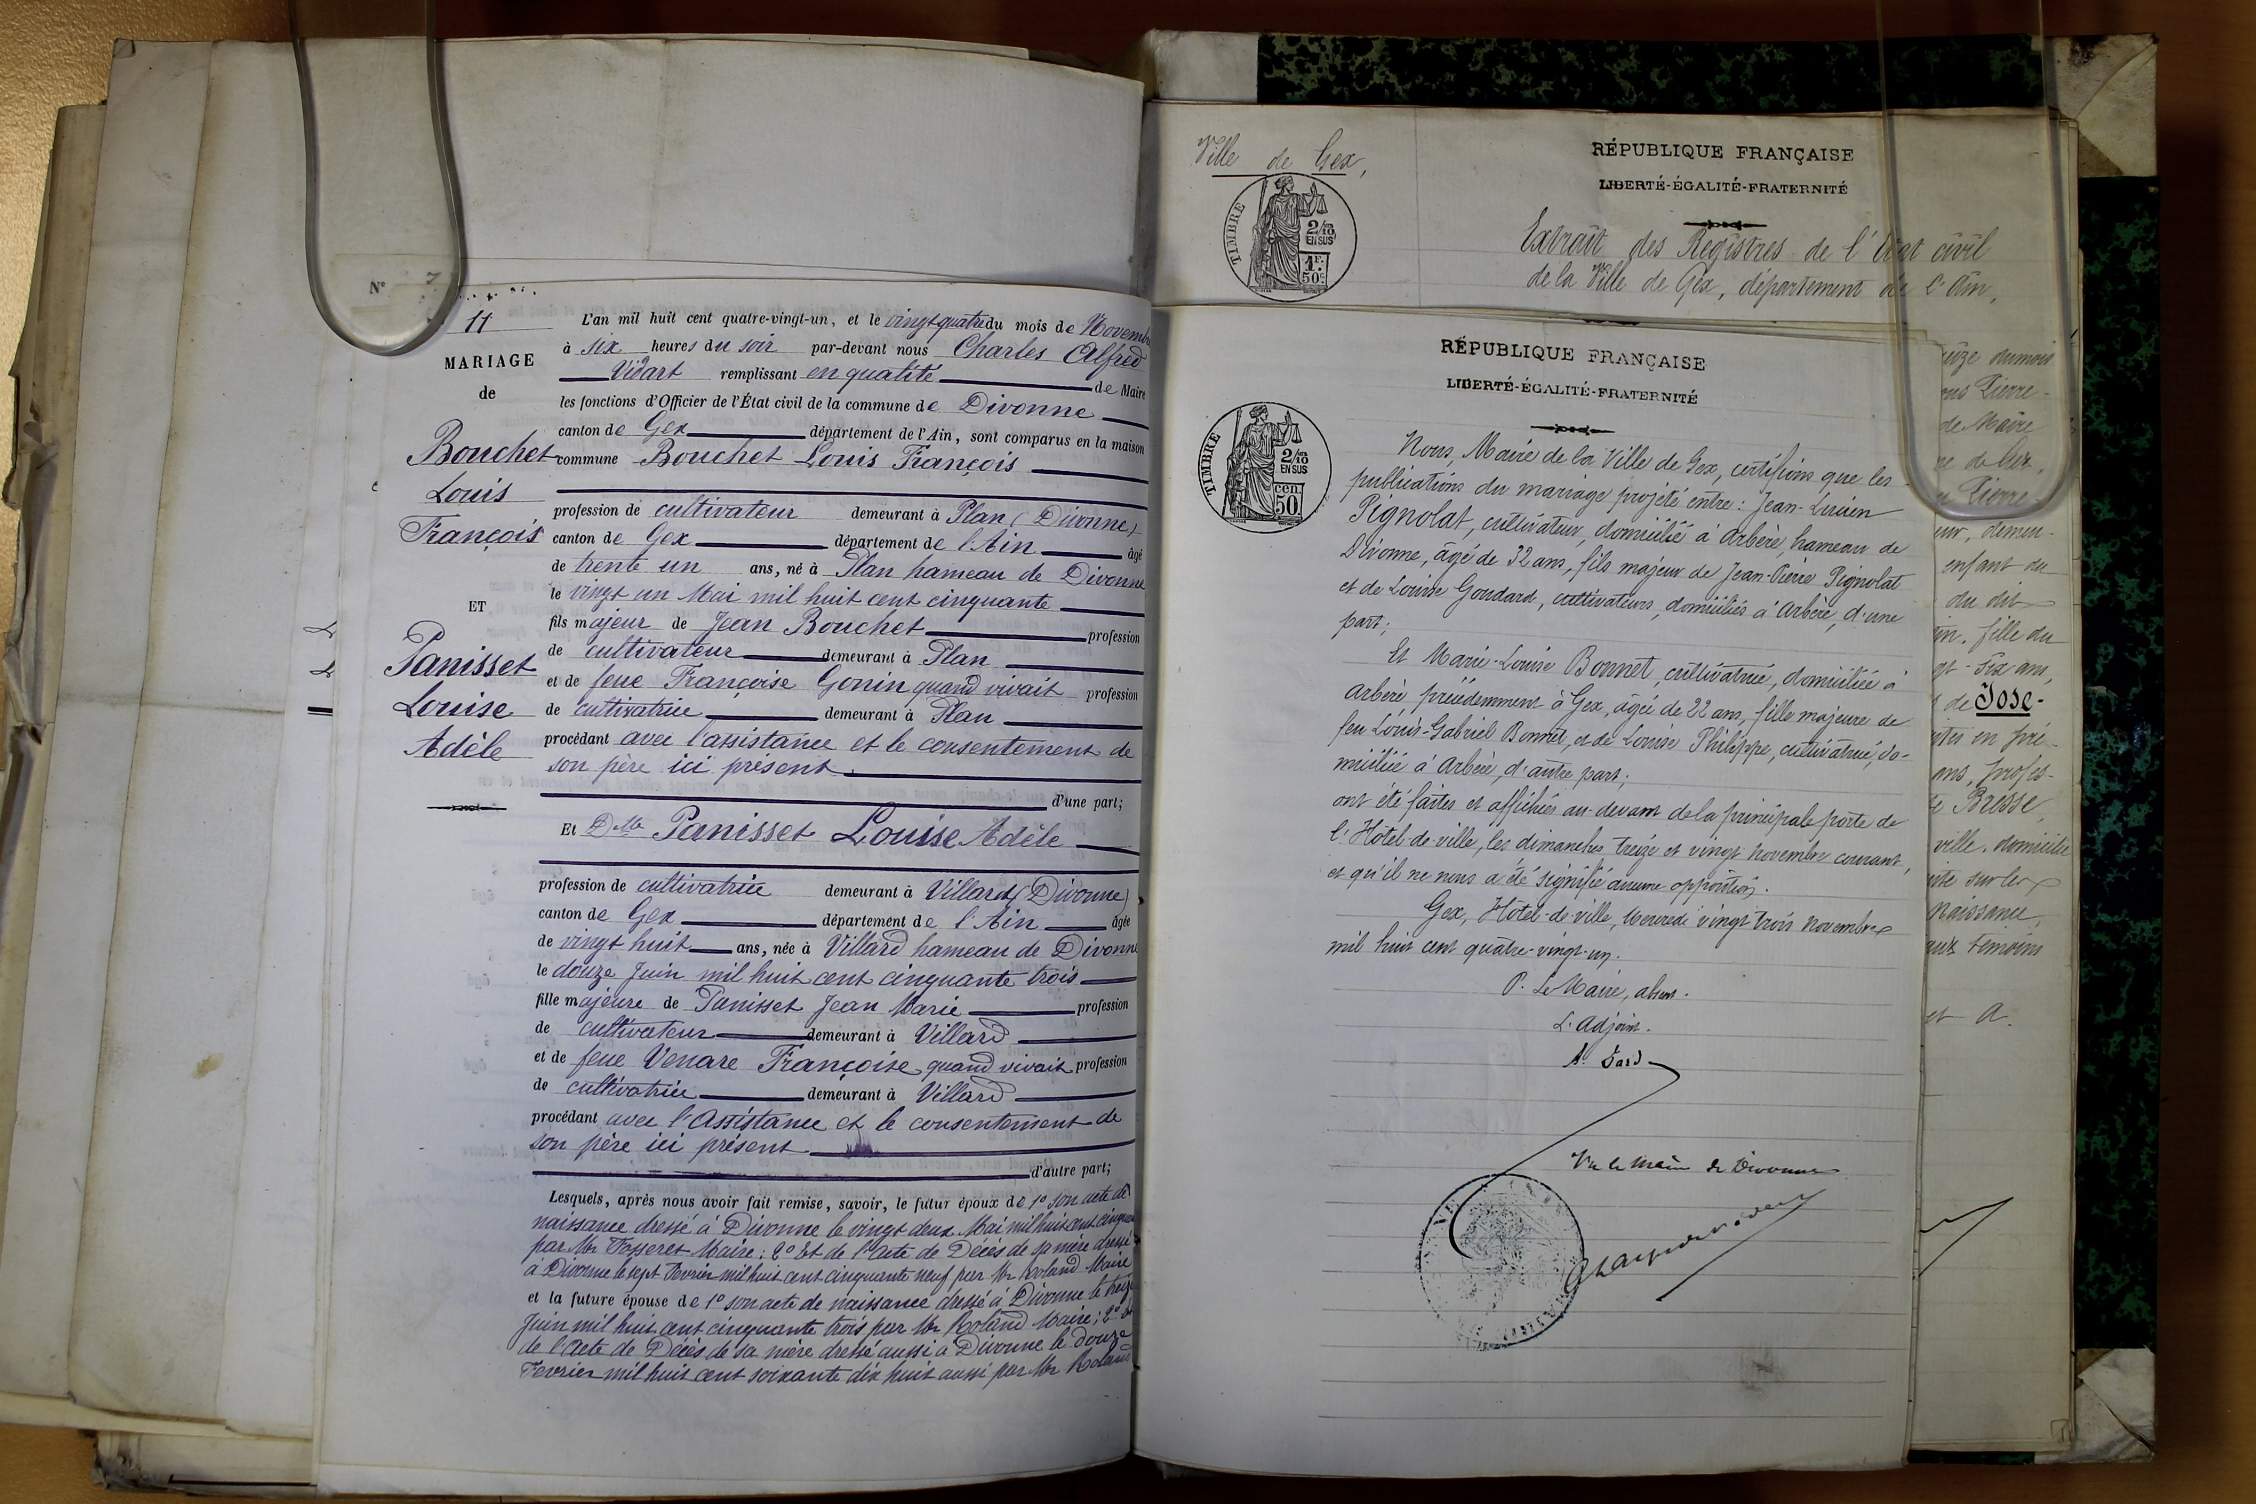 N° 7
11
MARIAGE
de
Bouchet
Louis
François
ET
Panisset
Louise
Adèle
L'an mil huit cent quatre-vingt-un, et le vingt quatre du mois de Novembre
à six heures du soir par-devant nous Charles Alfred
Vidart remplissant en qualité de Maire
les fonctions d'Officier de l'État civil de la commune de Divonne
canton de Gex département de l'Ain, sont comparus en la maison
commune Bouchet Louis François
profession de cultivateur demeurant à Plan (Divonne)
canton de Gex département de l'Ain âgé
de trente un ans, né à Plan hameau de Divonne
le vingt un Mai mil huit cent cinquante
fils majeur de Jean Bouchet profession
de cultivateur demeurant à Plan
et de feue Françoise Gonin quand vivait profession
de cultivatrice demeurant à Plan
procédant avec l'assistance et le consentement de
son père ici présent
d'une part;
Et Dlle Panisset Louise Adèle
profession de cultivatrice demeurant à Villard (Divonne)
canton de Gex département de l'Ain âgée
de vingt huit ans, née à Villard hameau de Divonne
le douze Juin mil huit cent cinquante trois
fille majeure de Panisset Jean Marie profession
de cultivateur demeurant à Villard
et de feue Venare Françoise quand vivait profession
de cultivatrice demeurant à Villard
procédant avec l'Assistance et le consentement de
son père ici présent
d'autre part;
Lesquels, après nous avoir fait remise, savoir, le futur époux de 1° son acte de
naissance dressé à Divonne le vingt deux Mai mil huit cent cinquante
par Mr Fosseret Maire; 2° Et de l'acte de Décès de sa mère dressé
à Divonne le sept Fevrier mil huit cent cinquante neuf par Mr Roland Maire
et la future épouse de 1° son acte de naissance dressé à Divonne le treize
Juin mil huit cent cinquante trois par Mr Roland Maire; 2° et
de l'acte de Décès de sa mère dressé aussi à Divonne le douze
Fevrier mil huit cent soixante dix huit aussi par Mr Roland
Ville de Gex,
TIMBRE
2/10
EN SUS
1F.
50c.
RÉPUBLIQUE FRANÇAISE
LIBERTÉ-ÉGALITÉ-FRATERNITÉ
Extrait des Registres de l'Etat civil
de la Ville de Gex, département de l'Ain,
RÉPUBLIQUE FRANÇAISE
LIBERTÉ-ÉGALITÉ-FRATERNITÉ
TIMBRE
2/10
EN SUS
cen.
50
Nous, Maire de la Ville de Gex, certifions que les
publications du mariage projeté entre: Jean-Lucien
Pignolat, cultivateur, domicilié à Arbère, hameau de
Divonne, âgé de 32 ans, fils majeur de Jean-Pierre Pignolat
et de Louise Goudard, cultivateurs, domiciliés à Arbère, d'une
part;
Et Marie-Louise Bonnet, cultivatrice, domiciliée à
Arbère, précédemment à Gex, âgée de 22 ans, fille majeure de
feu Louis-Gabriel Bonnet, et de Louise Philippe, cultivatrice, do-
miciliée à Arbère, d'autre part;
ont été faites et affichées au-devant de la principale porte de
l'Hôtel-de-ville, les dimanches treize et vingt novembre courant,
et qu'il ne nous a été signifié aucune opposition.
Gex, Hôtel-de-ville, Mercredi vingt trois novembre
mil huit cent quatre-vingt-un.
P. Le Maire, absent.
L'Adjoint.
Vu le Maire de Divonne
dumois
Pierre-
de Maire
Pierre-
enfant du
du dit
fille du
six ans,
de Jose-
en pré-
ans, profes-
Bresse,
ville, domicilié
sur les
Naissance,
témoins
et A.